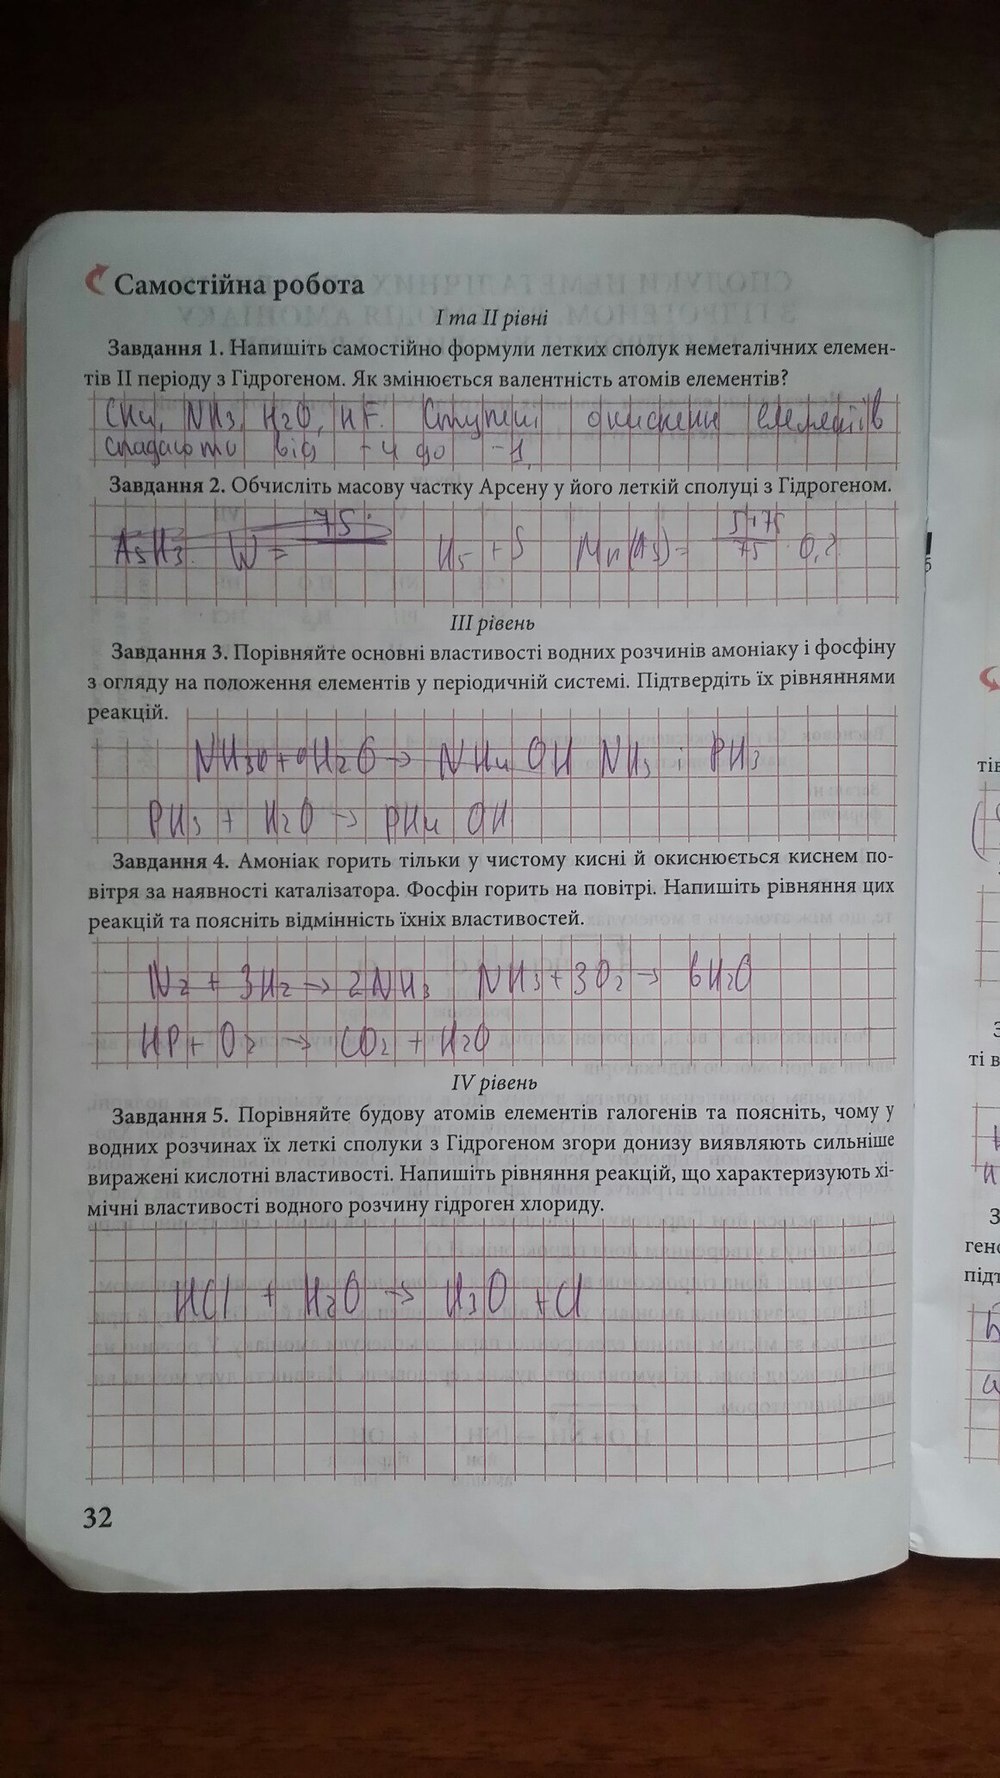 Самостійна робота
І та ІІ рівні
Завдання 1. Напишіть самостійно формули летких сполук неметалічних елемен-
тів ІІ періоду з Гідрогеном. Як змінюється валентність атомів елементів?
CH4, NH3, H2O, HF. Ступені окиснення елементів
спадають від +4 до -1.
Завдання 2. Обчисліть масову частку Арсену у його леткій сполуці з Гідрогеном.
AsH3 W = 75
ІІІ рівень
Завдання 3. Порівняйте основні властивості водних розчинів амоніаку і фосфіну
з огляду на положення елементів у періодичній системі. Підтвердіть їх рівняннями
реакцій.
H2O → NH4 OH NH3 і PH3
PH3 + H2O → PH4 OH
Завдання 4. Амоніак горить тільки у чистому кисні й окиснюється киснем по-
вітря за наявності каталізатора. Фосфін горить на повітрі. Напишіть рівняння цих
реакцій та поясніть відмінність їхніх властивостей.
N2 + 3H2 → 2NH3 NH3 + 3O2 → 6H2O
HP + O2 → CO2 + H2O
IV рівень
Завдання 5. Порівняйте будову атомів елементів галогенів та поясніть, чому у
водних розчинах їх леткі сполуки з Гідрогеном згори донизу виявляють сильніше
виражені кислотні властивості. Напишіть рівняння реакцій, що характеризують хі-
мічні властивості водного розчину гідроген хлориду.
HCl + H2O → H3O + Cl
32